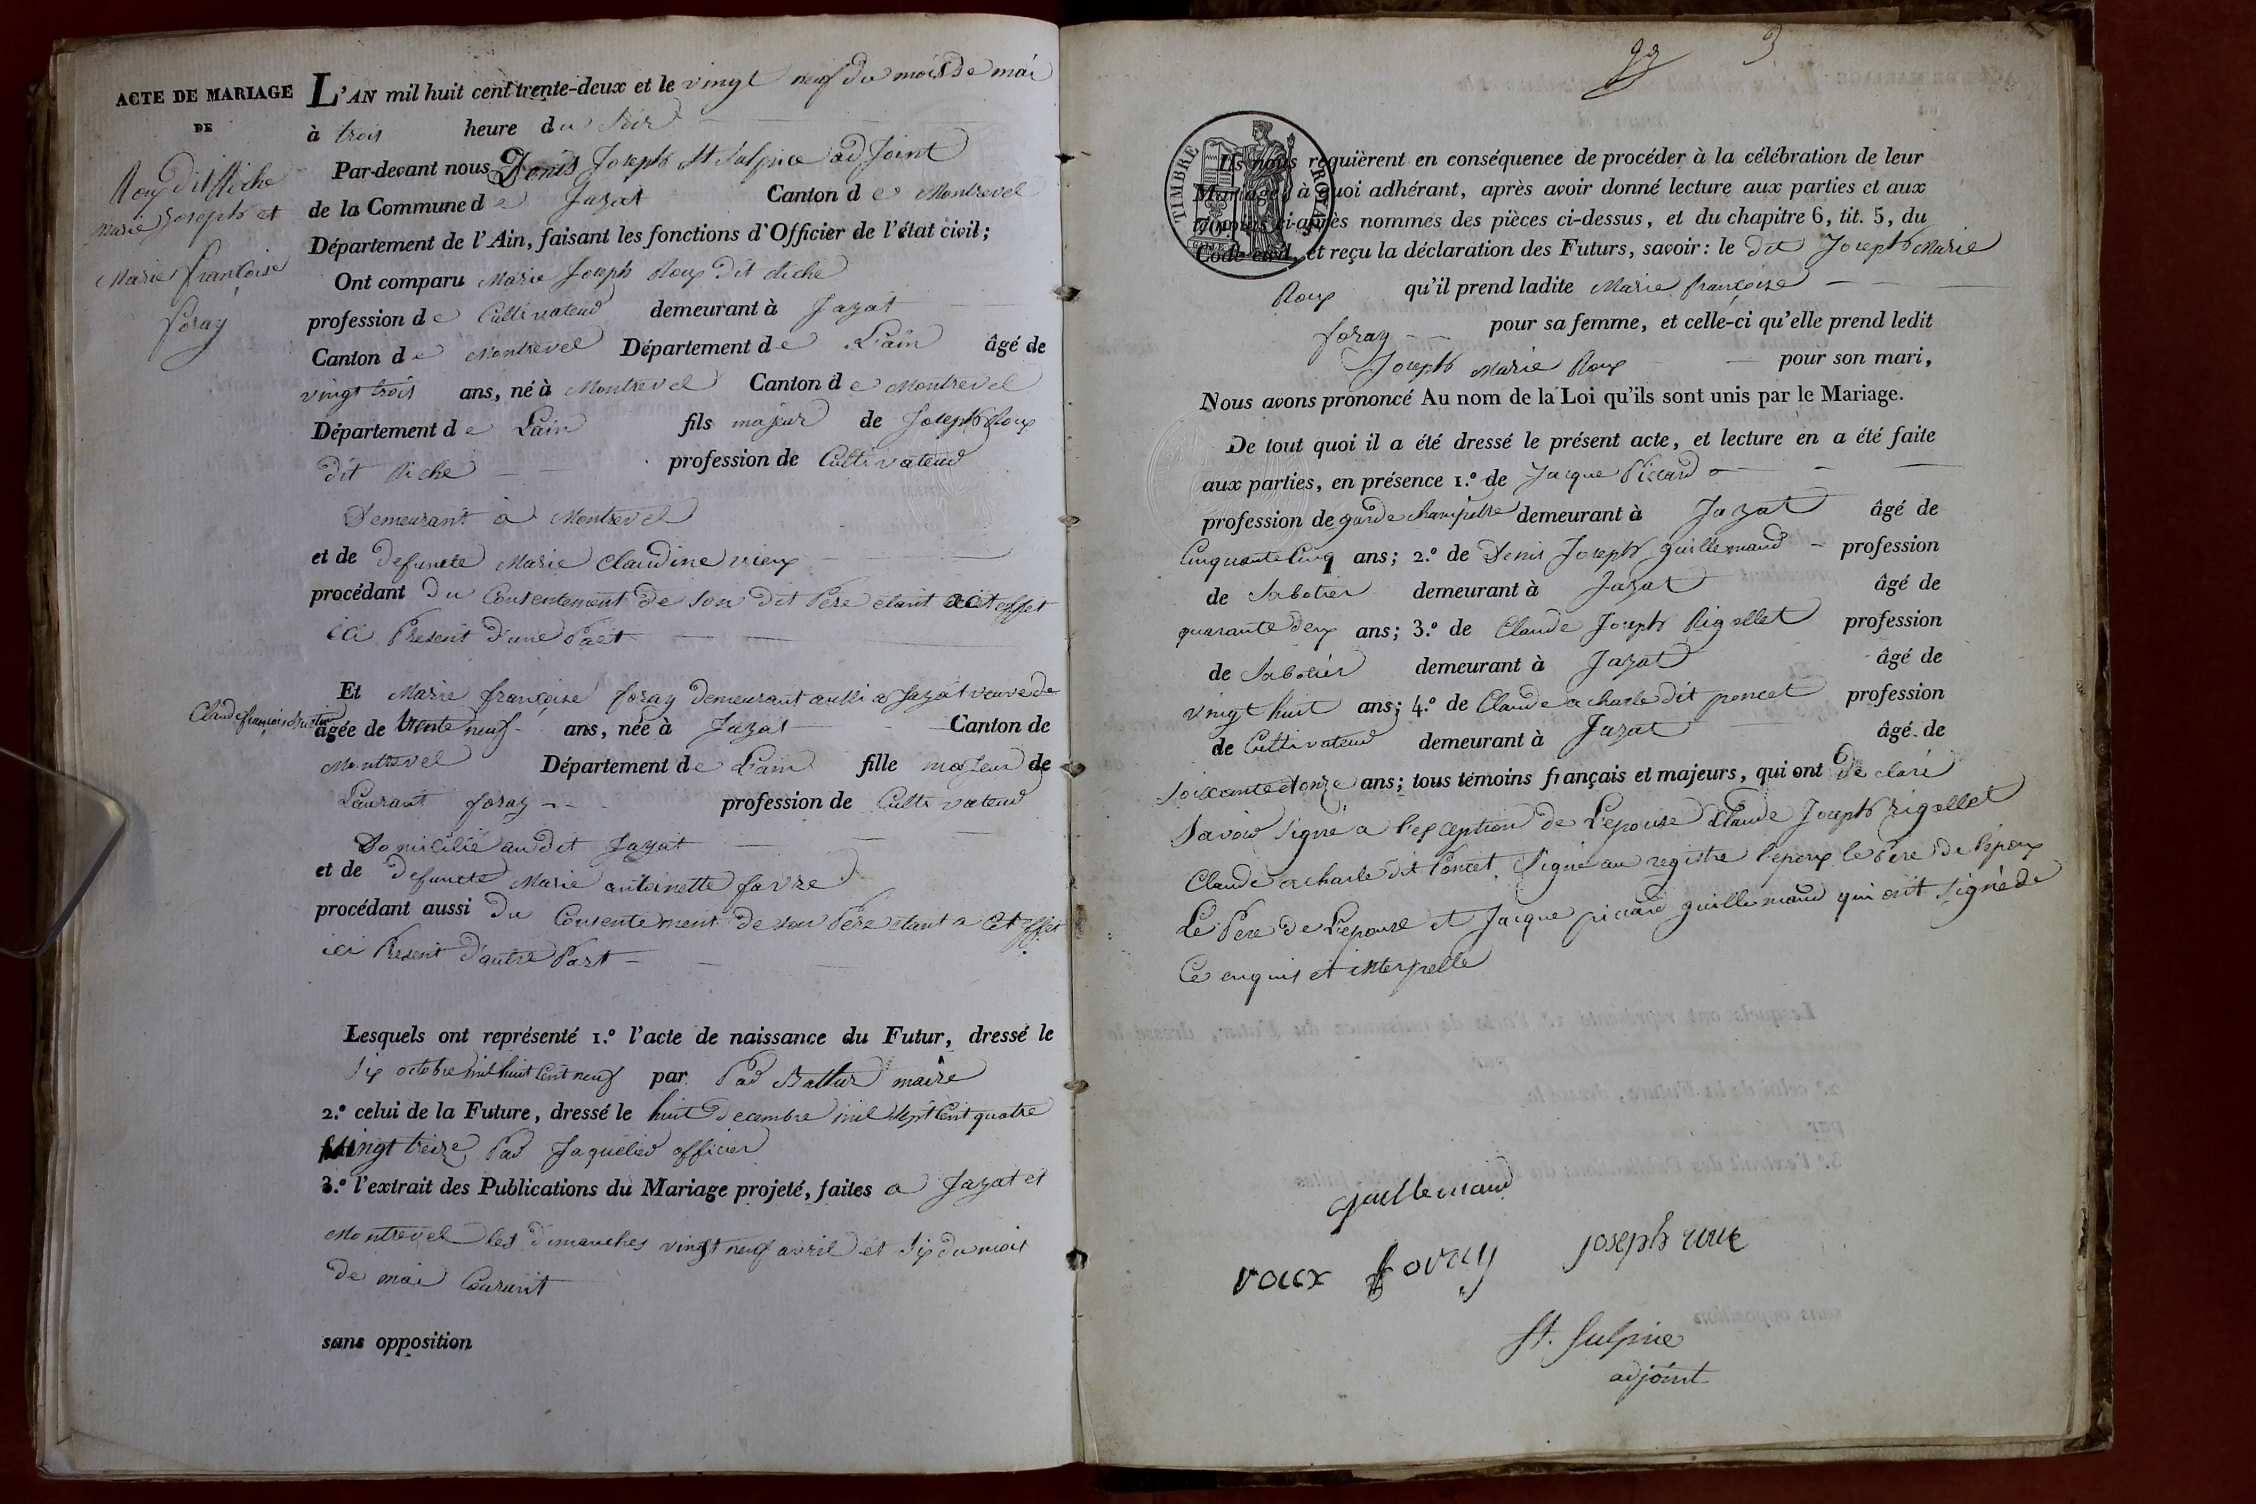 ACTE DE MARIAGE
DE
Roux dit Riche
Marie Joseph et
Marie françoise
foray
L'AN mil huit cent trente-deux et le vingt neuf du mois de mai
à trois heure du Soir
Par-devant nous Denis Joseph St Sulpice adjoint
de la Commune de Jayat Canton de Montrevel
Département de l'Ain, faisant les fonctions d'Officier de l'état civil;
Ont comparu Marie Joseph Roux dit Riche
profession de Cultivateur demeurant à Jayat
Canton de Montrevel Département de L'ain âgé de
vingt trois ans, né à Montrevel Canton de Montrevel
Département de Lain fils majeur de Joseph Roux
dit Riche profession de Cultivateur
Demeurant a Montrevel
et de defuncte Marie Claudine vieux
procédant du Consentement de Son dit Pere etant a cet effet
ici Present d'une Part
Et Marie françoise foray demeurant aussi a Jayat veuve de
Claude françois
âgée de trente neuf ans, née à Jayat Canton de
Montrevel Département de Lain fille majeur de
Laurant foray profession de Cultivateur
Domicilié au dit Jayat
et de defuncte Marie antoinette favre
procédant aussi du Consentement de son Pere etant a cet effet
ici Present d'autre Part
Lesquels ont représenté 1.º l'acte de naissance du Futur, dressé le
Six octobre mil huit Cent neuf par Par maire
2.º celui de la Future, dressé le huit decembre mil Sept Cent quatre
vingt treize Par Jaquelier officier
3.º l'extrait des Publications du Mariage projeté, faites a Jayat et
Montrevel les dimanches vingt neuf avril et Six du mois
de mai Courant
sans opposition
93 3
TIMBRE ROYAL
Ils nous requièrent en conséquence de procéder à la célébration de leur
Mariage; à quoi adhérant, après avoir donné lecture aux parties et aux
témoins ci-après nommés des pièces ci-dessus, et du chapitre 6, tit. 5, du
Code civil, et reçu la déclaration des Futurs, savoir: le dit Joseph Marie
Roux qu'il prend ladite Marie françoise
foray pour sa femme, et celle-ci qu'elle prend ledit
Joseph Marie Roux pour son mari,
Nous avons prononcé Au nom de la Loi qu'ils sont unis par le Mariage.
De tout quoi il a été dressé le présent acte, et lecture en a été faite
aux parties, en présence 1.º de Jacque Piccard
profession de garde champetre demeurant à Jayat âgé de
Cinquante Cinq ans; 2.º de Denis Joseph guillemaud profession
de Sabotier demeurant à Jayat âgé de
quarante deux ans; 3.º de Claude Joseph Rigollet profession
de Sabotier demeurant à Jayat âgé de
vingt huit ans; 4.º de Claude acharle dit poncet profession
de Cultivateur demeurant à Jayat âgé de
Soixante et onze ans; tous témoins français et majeurs, qui ont declaré
Savoir Signé a l'exception de L'epouse Claude Joseph rigollet
Claude acharle dit Poncet. Signé au registre l'epoux le Pere de l'epoux
Le Pere de L'epouse et Jacque piccard guillemaud qui ont Signé de
Ce enquis et interpellé
guillemaud
roux foray joseph roux
St. Sulpice
adjoint